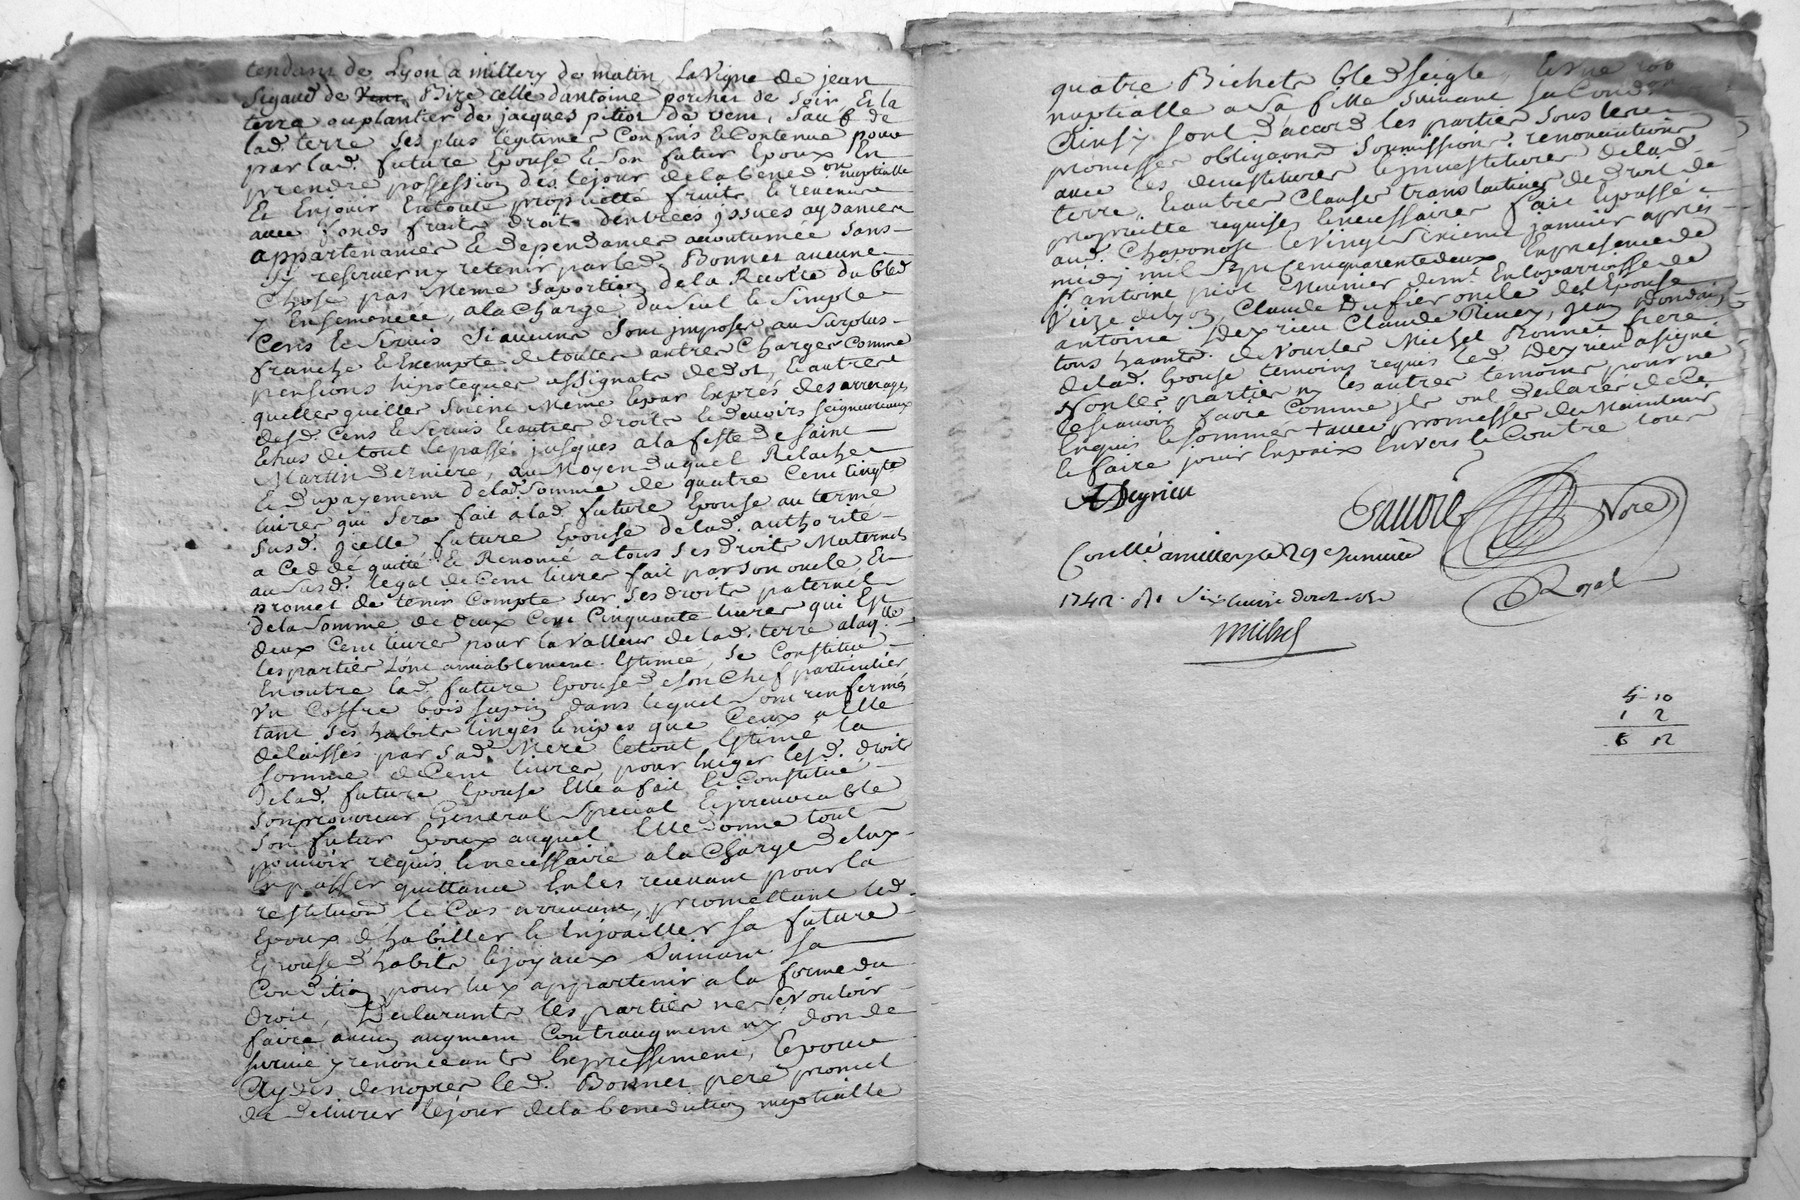 tendant de Lyon a millery de matin, La Vigne de jean
Sigaud de Bize celle d'antoine porcher de soir Et la
terre ou plantier de jacques pitiot de vent, sauf de
lad. terre ses plus legitimes Confins & Contenue pour
par lad. future Epouse & Son futur Epoux En
prendre possession dés le jour de la bened.on nuptialle
Et En jouir En toute proprieté fruits & revenus
avec fonds fruits droits d'entrées jssues aysances
appartenances & dependances accoutumée sans
s'y reserver ny retenir par led. Bonnet aucune
Chose pas Meme Sa portion de la Recolte du bled
y Ensemencée, a la Charge du Seul & Simple
Cens & Servis Si aucuns Sont jmposés au Surplus
franche & Exempte de toutes autres Charges Comme
pensions hipoteques assignats de dot, & autres
quelles quelles Soient Meme & par Exprés des arrerages
desd. Cens & Servis & autres droits & devoirs seigneuriaux
Echus de tout le passé jusques a la feste de saint
Martin derniere, au Moyen duquel Relache
Et du payement de lad. Somme de quatre Cent Vingt
livres qui sera fait a lad. future Epouse au terme
Susd. jcelle future Epouse de lad. authorité
a Cedé quitté & Renoncé a tous ses droits Maternels
au Susd. legat de Cent livres fait par son oncle Et
promet de tenir Compte sur ses droits paternel
de la Somme de deux Cent Cinquante livres qui Est
deux Cent livres pour la valleur de lad. terre a laq.lle
les parties l'ont amiablement Estimée, Se Constitue
En outre lad. future Epouse de son Chef particulier
Un Coffre bois sapin dans lequel sont renfermés
tant ses habits linges & nipes que Ceux a Elle
delaissés par sad. Mere le tout Estimé la
Somme de Cent livres, pour Exiger lesd. droits
de lad. future Epouse Elle a fait & Constitué
son procureur General Special & jrrevocable
Son futur Epoux auquel Elle donne tout
pouvoir requis & necessaire a la Charge de luy
En passer quittance En les recevant pour la
restitution le Cas arrivant, promettant led.
Epoux d'habiller & Enjoailler sa future
Epouse d'habits & joyaux Suivant sa
Condition pour luy appartenir a la forme du
droit, Declarants les parties ne Se Vouloir
faire aucun augment Contraugment ny don de
survie y renonceants Expressement,
de nopces led. Bonnet pere promet
de delivrer le jour de la benediction nuptialle
quatre Bichets bled seigle,
nuptialle a sa fille suivant sa Condition
Ainsy sont d'accord les parties Sous leurs
promesses obligaons Soumissions renonciations
avec les devestitures & jnvestitures de lad.
terre. & autres Clauses translatives de droit de
proprieté requises & necessaires fait & passé
aud. Chaponost le vingt Sixieme janvier aprés
midy mil Sept Cent quarente deux En presence de
antoine piot Meunier demt. En la parroisse de
Veize de Lyon, Claude Dufier oncle de l'Epouse
antoine Deyrieu Claude Rivey, jean
tous habitants de Vourles Michel Bonnet frere
de lad. Epouse temoins requis led. Deyrieu a signé
Non les parties ny les autres temoins pour ne
le sçavoir faire Comme jls ont declarés de Ce
Enquis & sommés + avec promesses de Maintenir
& faire jouir En paix Envers & Contre tous
A Deyrieu
Nore
Royal
Conllé a millery le 29e Janvier
1742. Rt Six livres douze sols
Michel
5 10
1 2
6 12